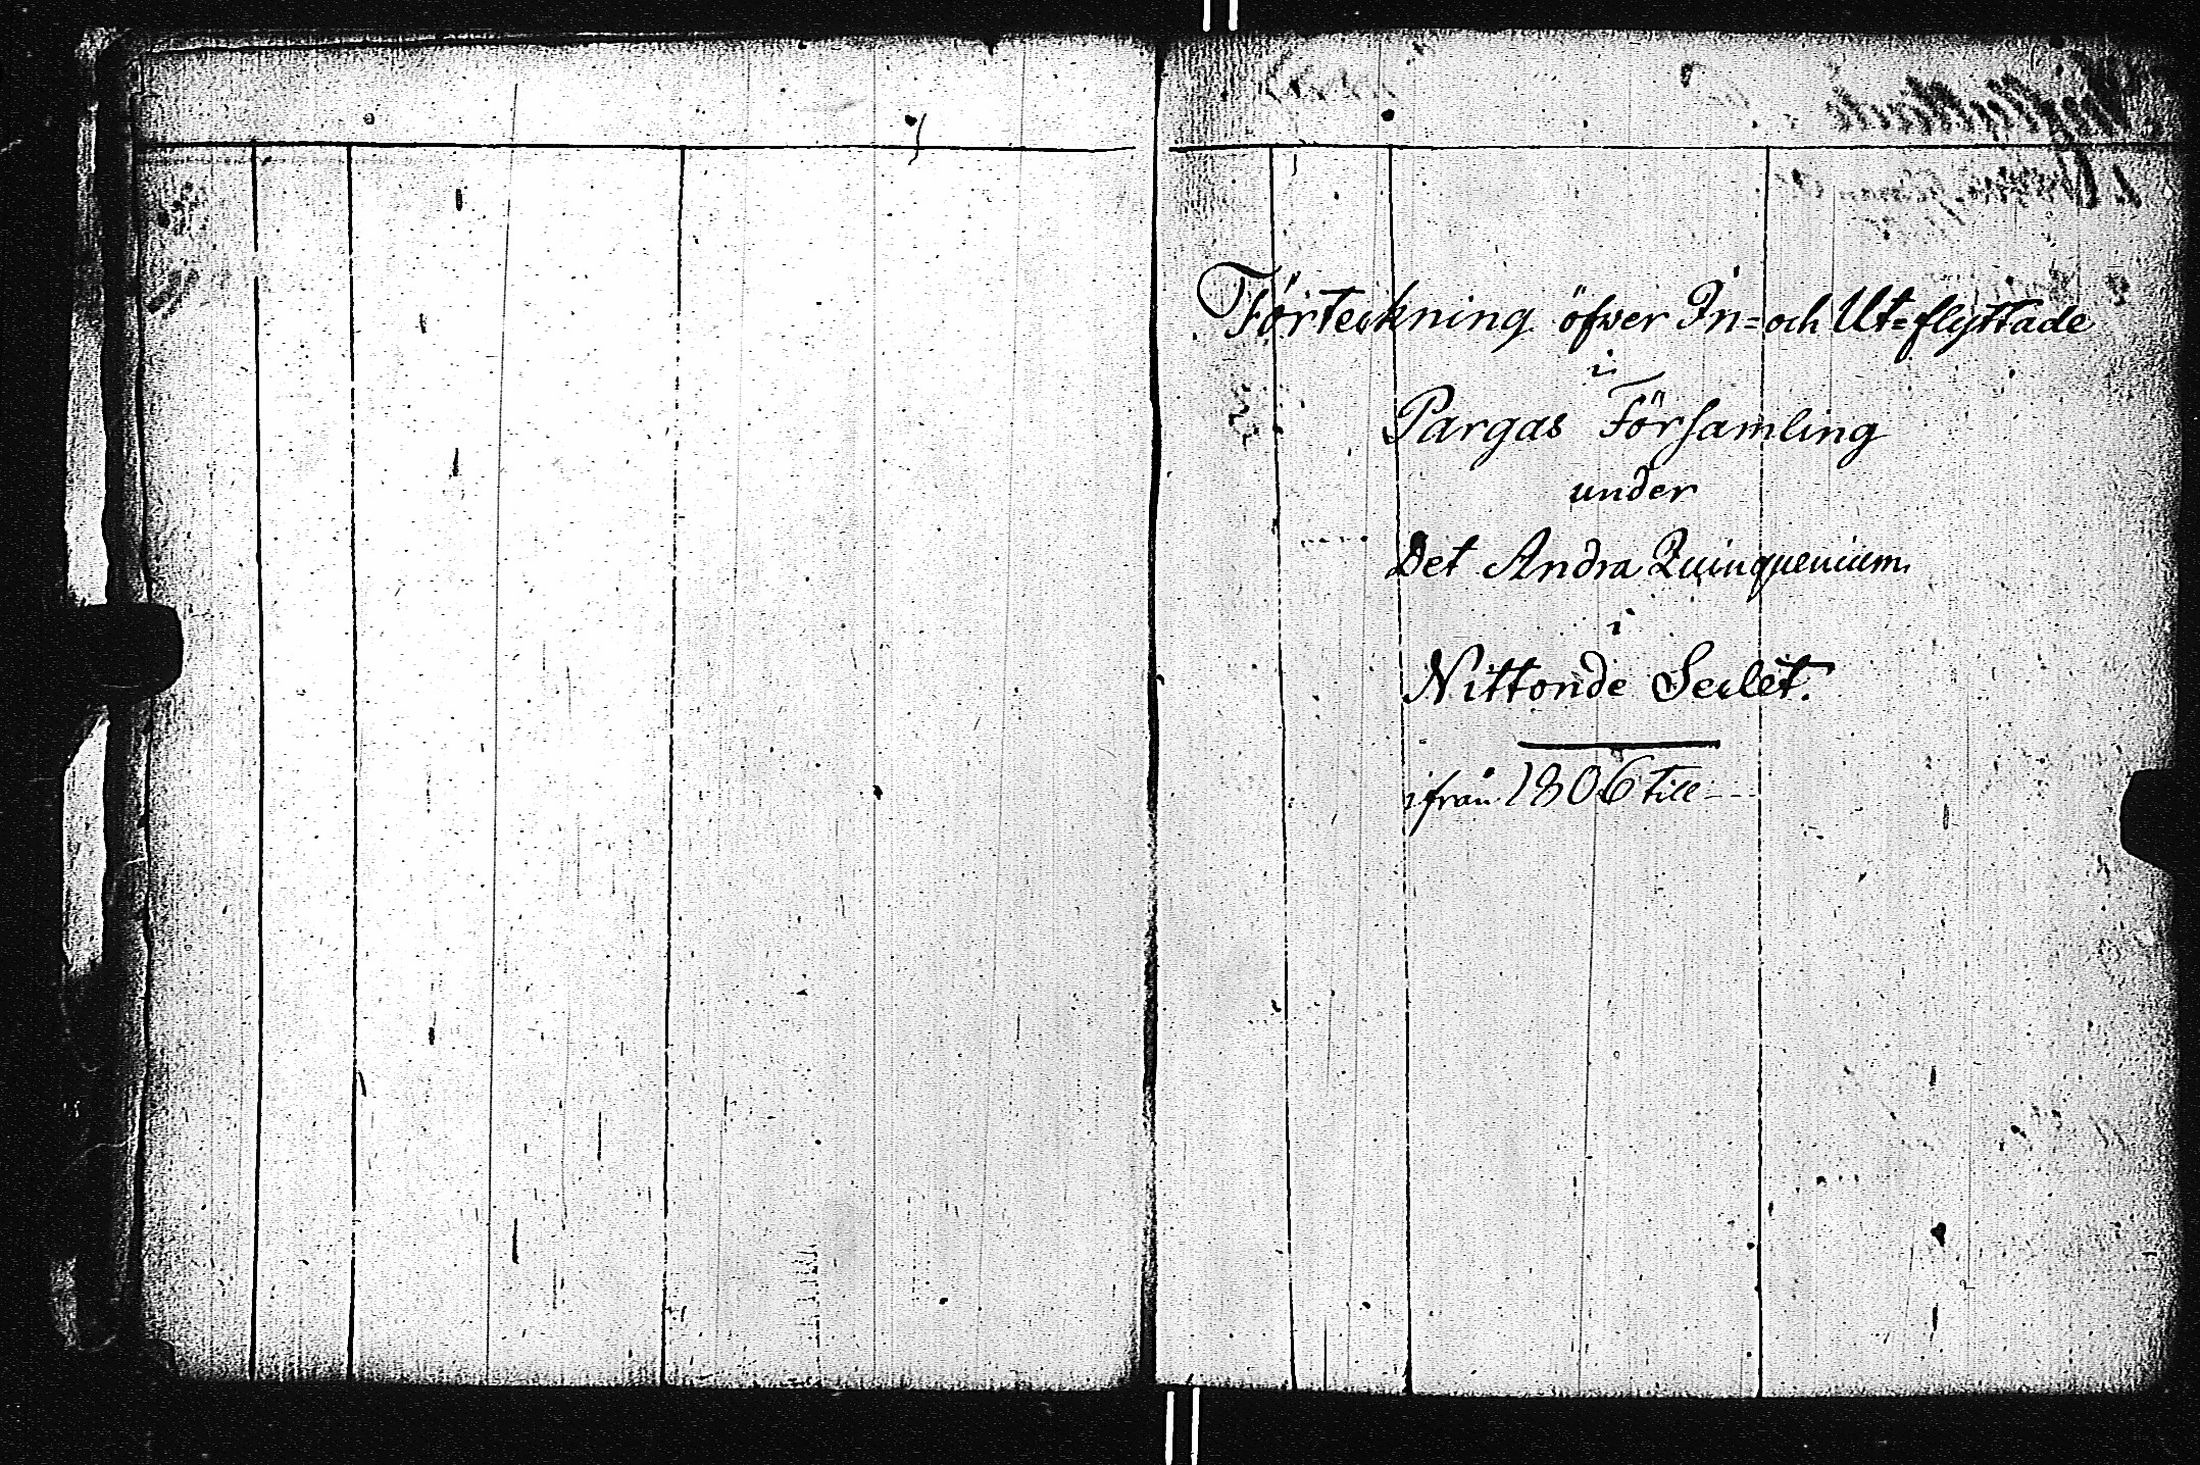 Förteckning öfwer In= och Ut=flyttade
i
Pargas Församling
under
Det Andra Quinquenium
i
Nittonde Seclet.
ifrån 1806 till ---